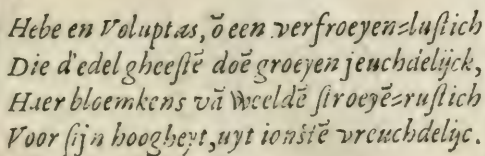 Hebe en Voluptas, õ een verfroeyen⸗luſtich
Die d'edel gheeſtẽ doẽ groeyen jeuchdelijck,
Haer bloemkens vã Weeldẽ ſtroeyẽ⸗ruſtich
Voor ſijn hoogheyt, uyt ionſtẽ vreuchdelijc.